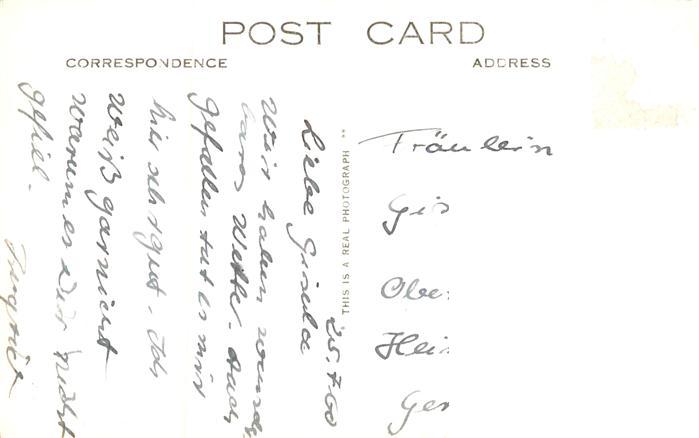 POST CARD
CORRESPONDENCE
ADDRESS
THIS IS A REAL PHOTOGRAPH
25.7.60
Liebe Gisela
Wir haben wunder-
bares Wetter. Auch
gefallen tut es mir
hier sehr gut. Ich
weiß garnicht
warum es Dir nicht
gefiel.
Fräulein
Gis
Ober
Hei
Ger